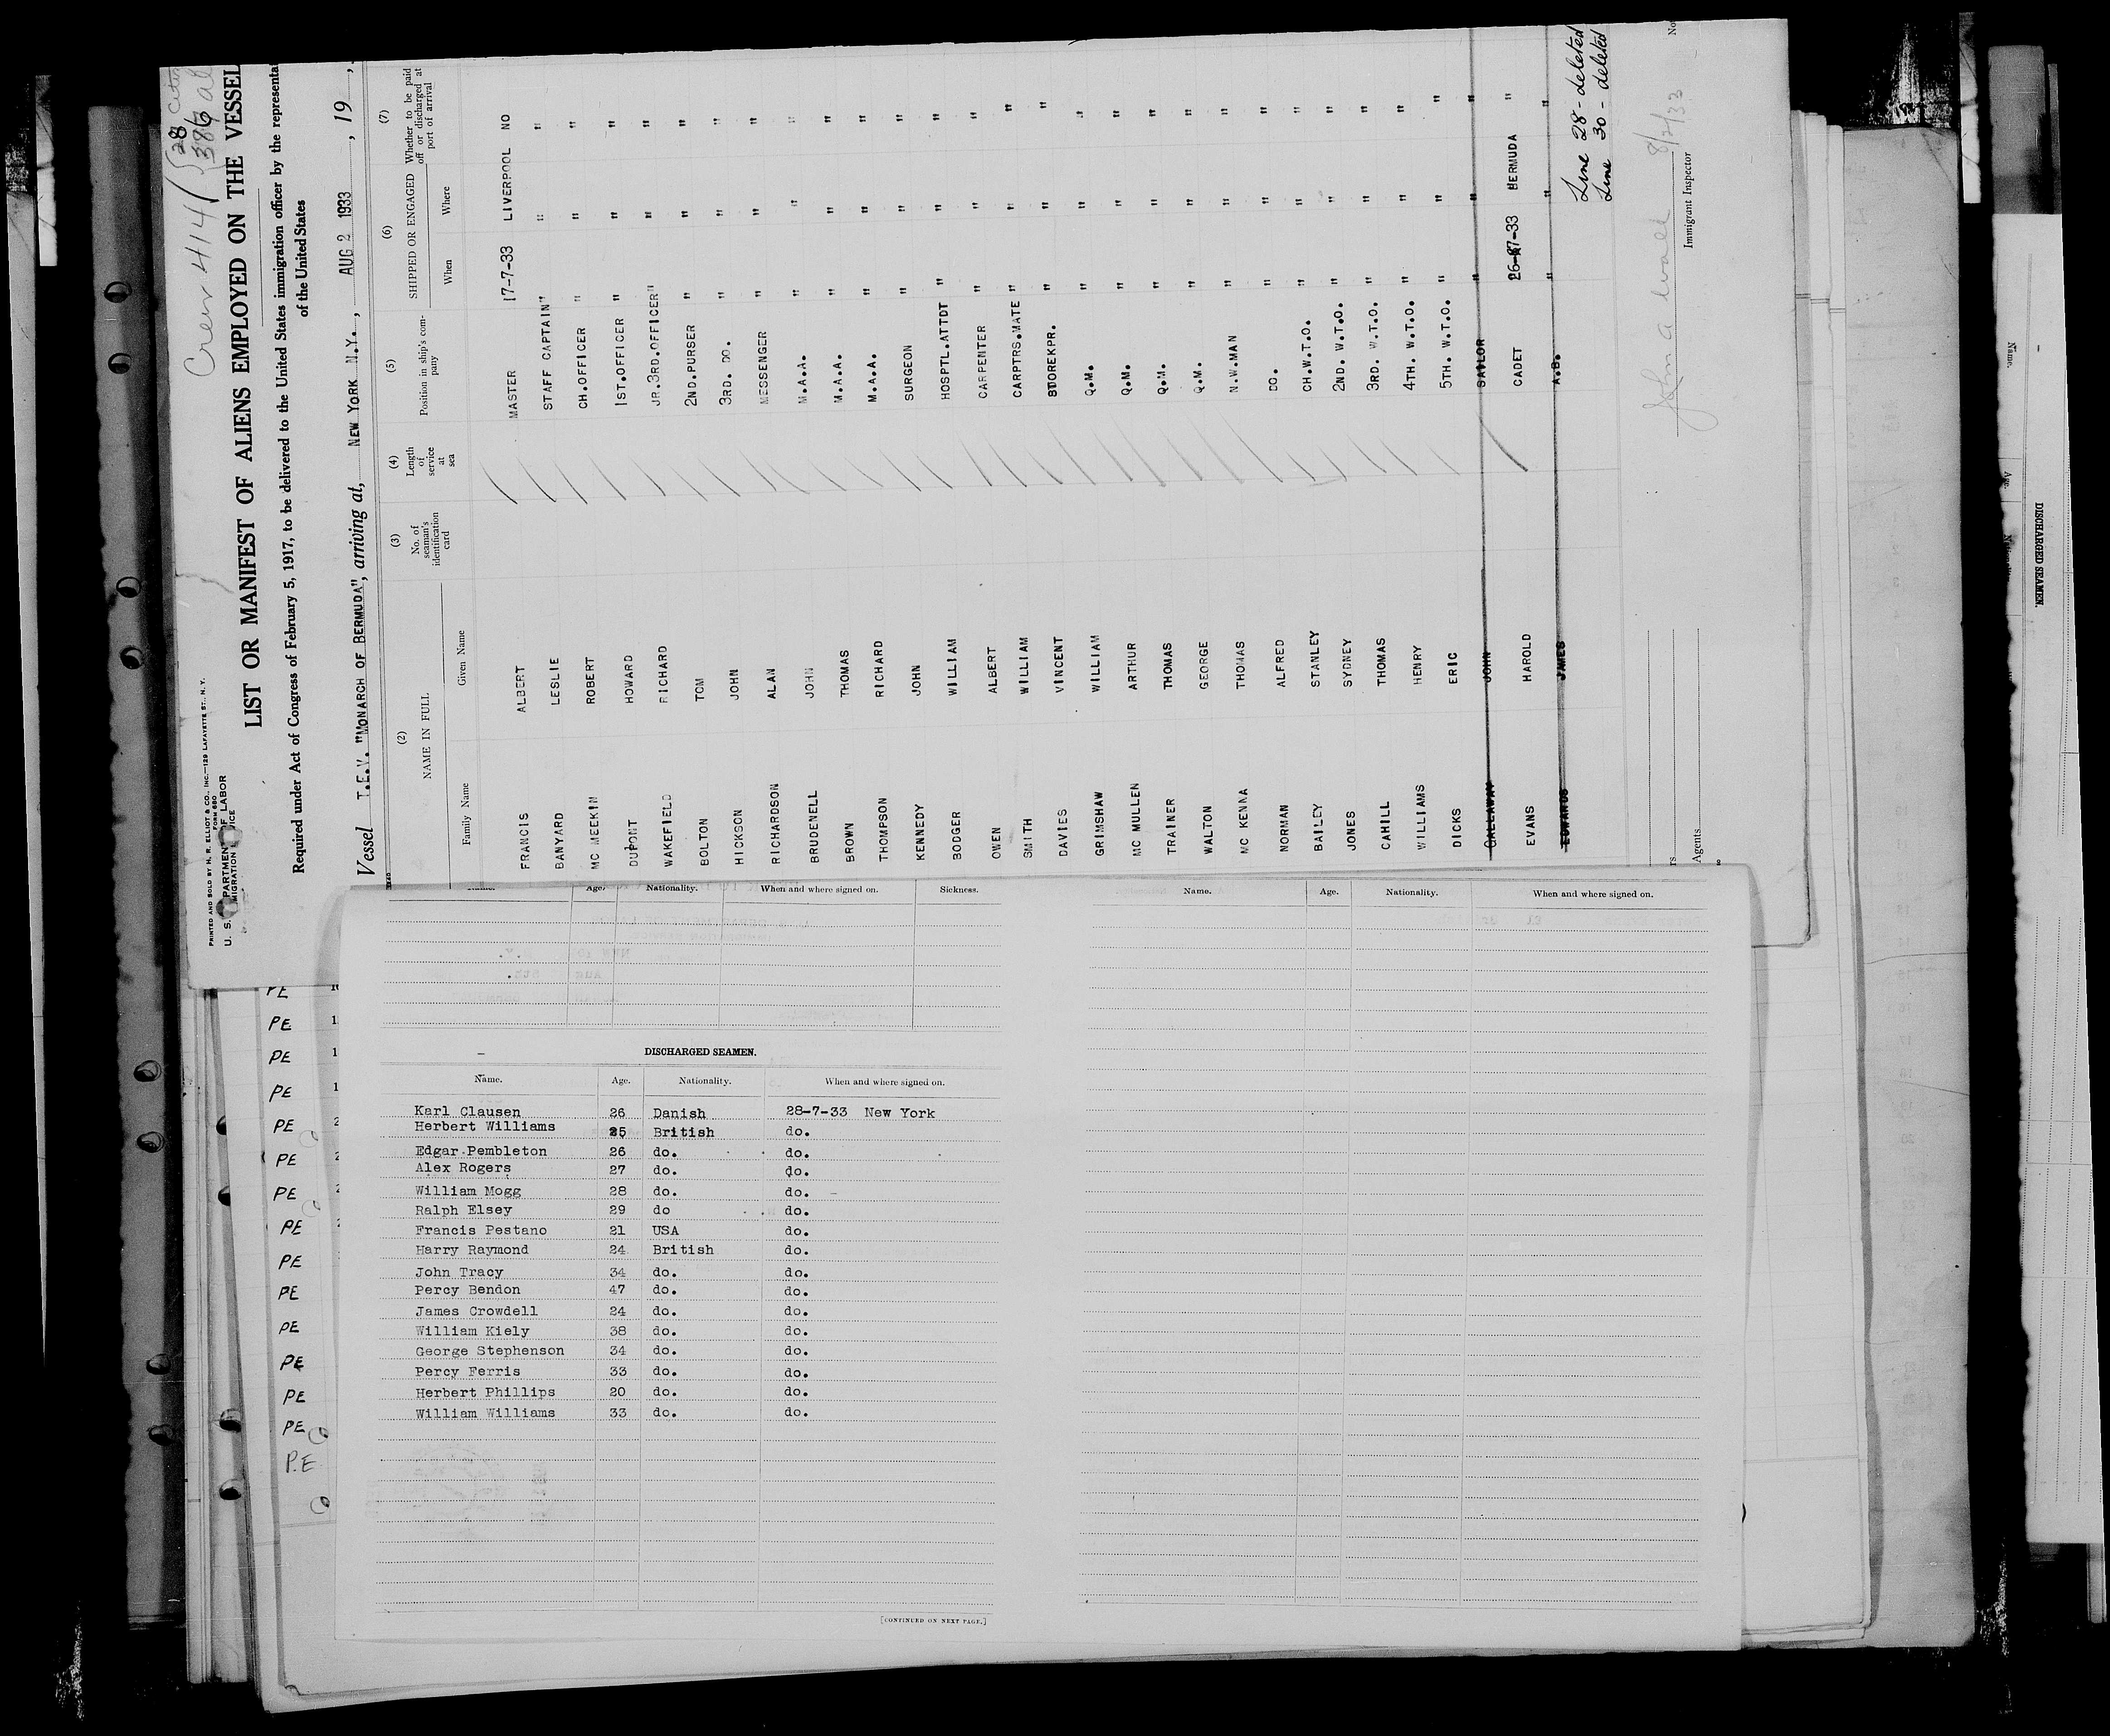 PRINTED AND SOLD BY H. R. ELLIOT & CO., INC.—129 LAFAYETTE ST., N. Y.
FORM 680
U. S. DEPARTMENT OF LABOR
Crew 414
28
386
LIST OR MANIFEST OF ALIENS EMPLOYED ON THE VESSEL
Required under Act of Congress of February 5, 1917, to be delivered to the United States immigration officer by the representa
of the United States
Vessel T.E.V. "MONARCH OF BERMUDA", arriving at, NEW YORK N.Y., AUG 2 1933, 19
(2) (3) (4) (5) (6) (7)
NAME IN FULL No. of seaman's identification card Length of service at sea Position in ship's company SHIPPED OR ENGAGED Whether to be paid off or discharged at port of arrival
Family Name Given Name When Where
FRANCIS ALBERT MASTER 17-7-33 LIVERPOOL NO
BANYARD LESLIE STAFF CAPTAIN " " "
MC MEEKIN ROBERT CH.OFFICER " " "
DUPONT HOWARD 1ST.OFFICER " " "
WAKEFIELD RICHARD JR.3RD.OFFICER " " "
BOLTON TOM 2ND.PURSER " " "
HICKSON JOHN 3RD. DO. " " "
RICHARDSON ALAN MESSENGER " " "
BRUDENELL JOHN M.A.A. " " "
BROWN THOMAS M.A.A. " " "
THOMPSON RICHARD M.A.A. " " "
KENNEDY JOHN SURGEON " " "
BODGER WILLIAM HOSPTL.ATTDT " " "
OWEN ALBERT CARPENTER " " "
SMITH WILLIAM CARPTRS.MATE " " "
DAVIES VINCENT STOREKPR. " " "
GRIMSHAW WILLIAM Q.M. " " "
MC MULLEN ARTHUR Q.M. " " "
TRAINER THOMAS Q.M. " " "
WALTON GEORGE Q.M. " " "
MC KENNA THOMAS N.W.MAN " " "
NORMAN ALFRED DO. " " "
BAILEY STANLEY CH.W.T.O. " " "
JONES SYDNEY 2ND. W.T.O. " " "
CAHILL THOMAS 3RD. W.T.O. " " "
WILLIAMS HENRY 4TH. W.T.O. " " "
DICKS ERIC 5TH. W.T.O. " " "
CALLAWAY JOHN SAILOR " " "
EVANS HAROLD CADET 26-7-33 BERMUDA "
EDWARDS JAMES A.B. " " "
Line 28 - deleted
Line 30 - deleted
8/2/33
Immigrant Inspector
Agents
Name. Age. Nationality. When and where signed on. Sickness.
DISCHARGED SEAMEN.
Name. Age. Nationality. When and where signed on.
Karl Clausen 26 Danish 28-7-33 New York
Herbert Williams 25 British do.
Edgar Pembleton 26 do. do.
Alex Rogers 27 do. do.
William Mogg 28 do. do.
Ralph Elsey 29 do do.
Francis Pestano 21 USA do.
Harry Raymond 24 British do.
John Tracy 34 do. do.
Percy Bendon 47 do. do.
James Crowdell 24 do. do.
William Kiely 38 do. do.
George Stephenson 34 do. do.
Percy Ferris 33 do. do.
Herbert Phillips 20 do. do.
William Williams 33 do. do.
[CONTINUED ON NEXT PAGE.]
Name. Age. Nationality. When and where signed on.
PE
PE
PE
PE
PE
PE
PE
PE
PE
PE
PE
PE
PE
PE
P.E
Name.
Age.
DISCHARGED SEAMEN.